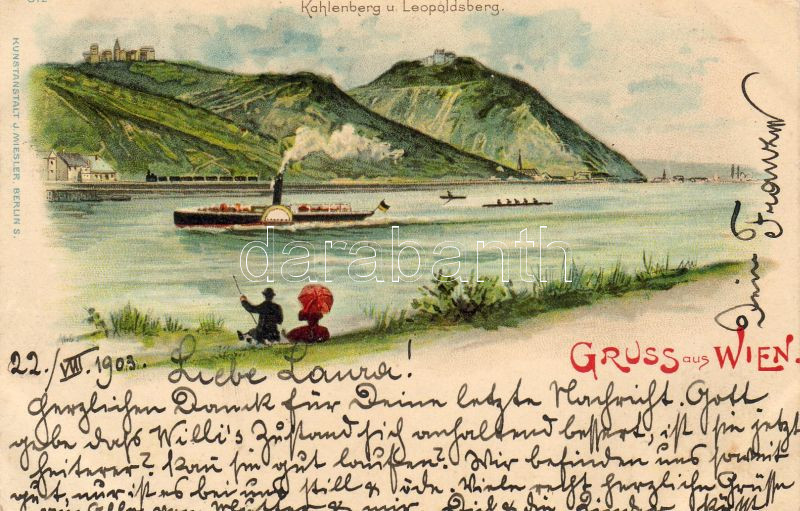 Kahlenberg u. Leopoldsberg.
KUNSTANSTALT J. MIESLER BERLIN S.
darabanth
GRUSS aus WIEN.
22./VIII 1903. Liebe Laura!
Herzlichen Danck für Deine letzte Nachricht. Gott
gebe dass Willi's Zustand sich anhaltend bessert, ist sie jetzt
heiterer? kan sie gut laufen? Wir befinden uns soweit
gut, nur ist es bei uns still & öde. Viele recht herzliche Grüsse
von Alle von Mutter & mir. Dich & die Kinder küsst
Dein